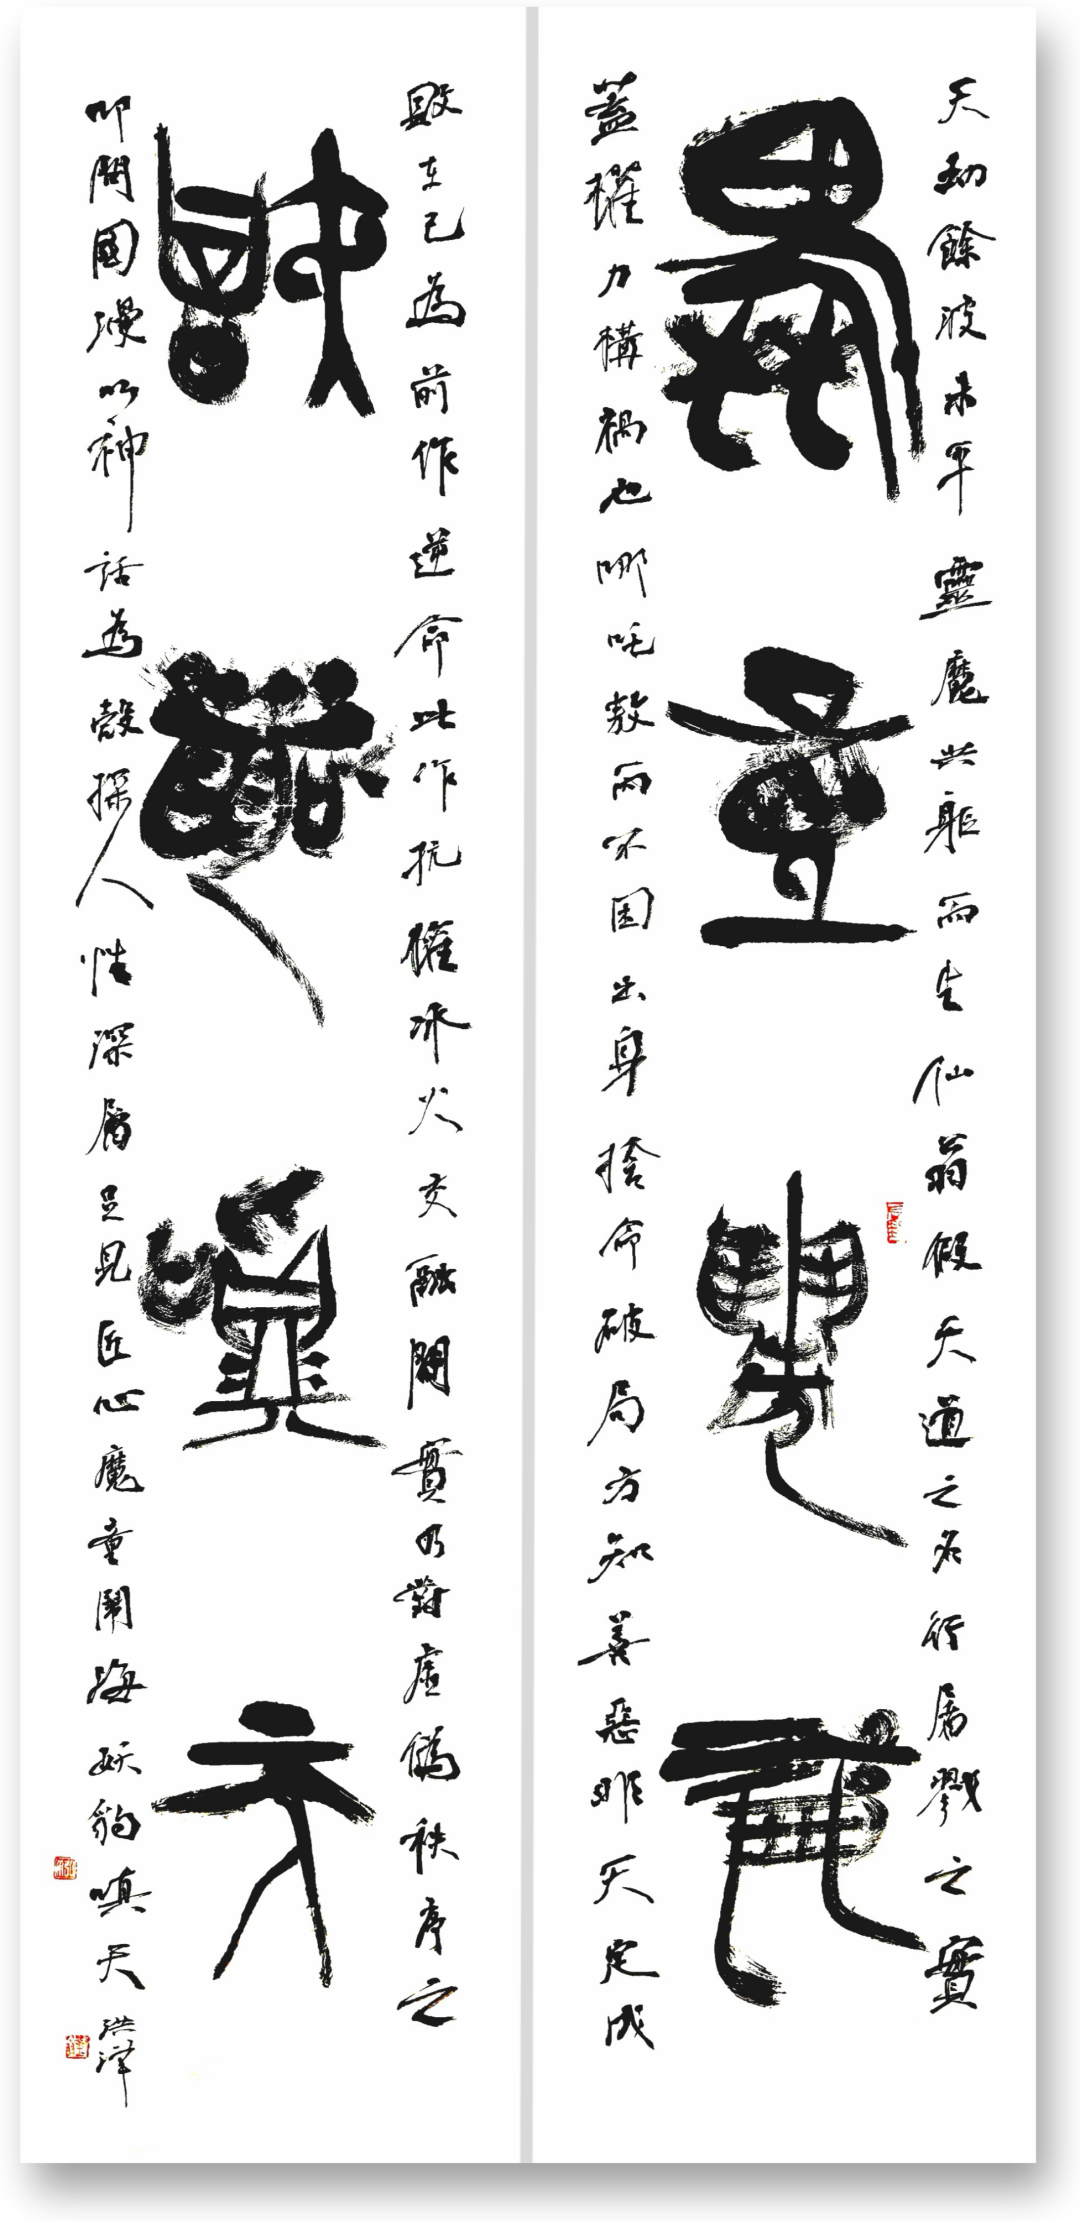 天劫餘波未平靈魔共軀而生仙翁假天道之名行屠戮之實
魔童鬧海
蓋權力構禍也哪吒敖丙不困出身捨命破局方知善惡非天定成
敗在己為前作逆命此作抗權冰火交融間實乃對虛偽秩序之
嗔天
叩問國漫以神話為殼探人性深層足見匠心魔童鬧海妖豹嗔天洪澤